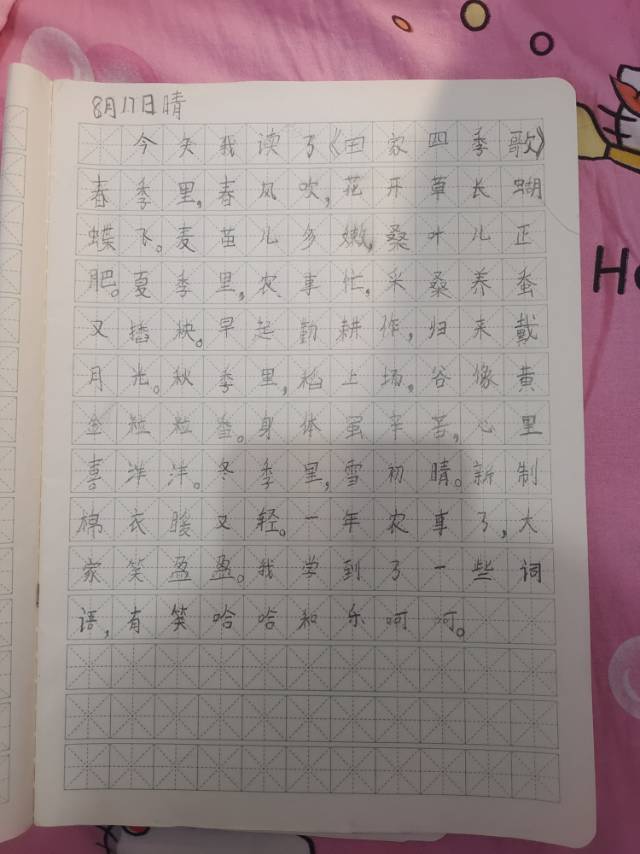 8月17日晴
今天我读了《田家四季歌》
春季里,春风吹,花开草长蝴
蝶飞。麦苗儿多嫩,桑叶儿正
肥。夏季里,农事忙,采桑养蚕
又插秧。早起勤耕作,归来戴
月光。秋季里,稻上场,谷像黄
金粒粒香。身体虽辛苦,心里
喜洋洋。冬季里,雪初晴。新制
棉衣暖又轻。一年农事了,大
家笑盈盈。我学到了一些词
语,有笑哈哈和乐呵呵。
H